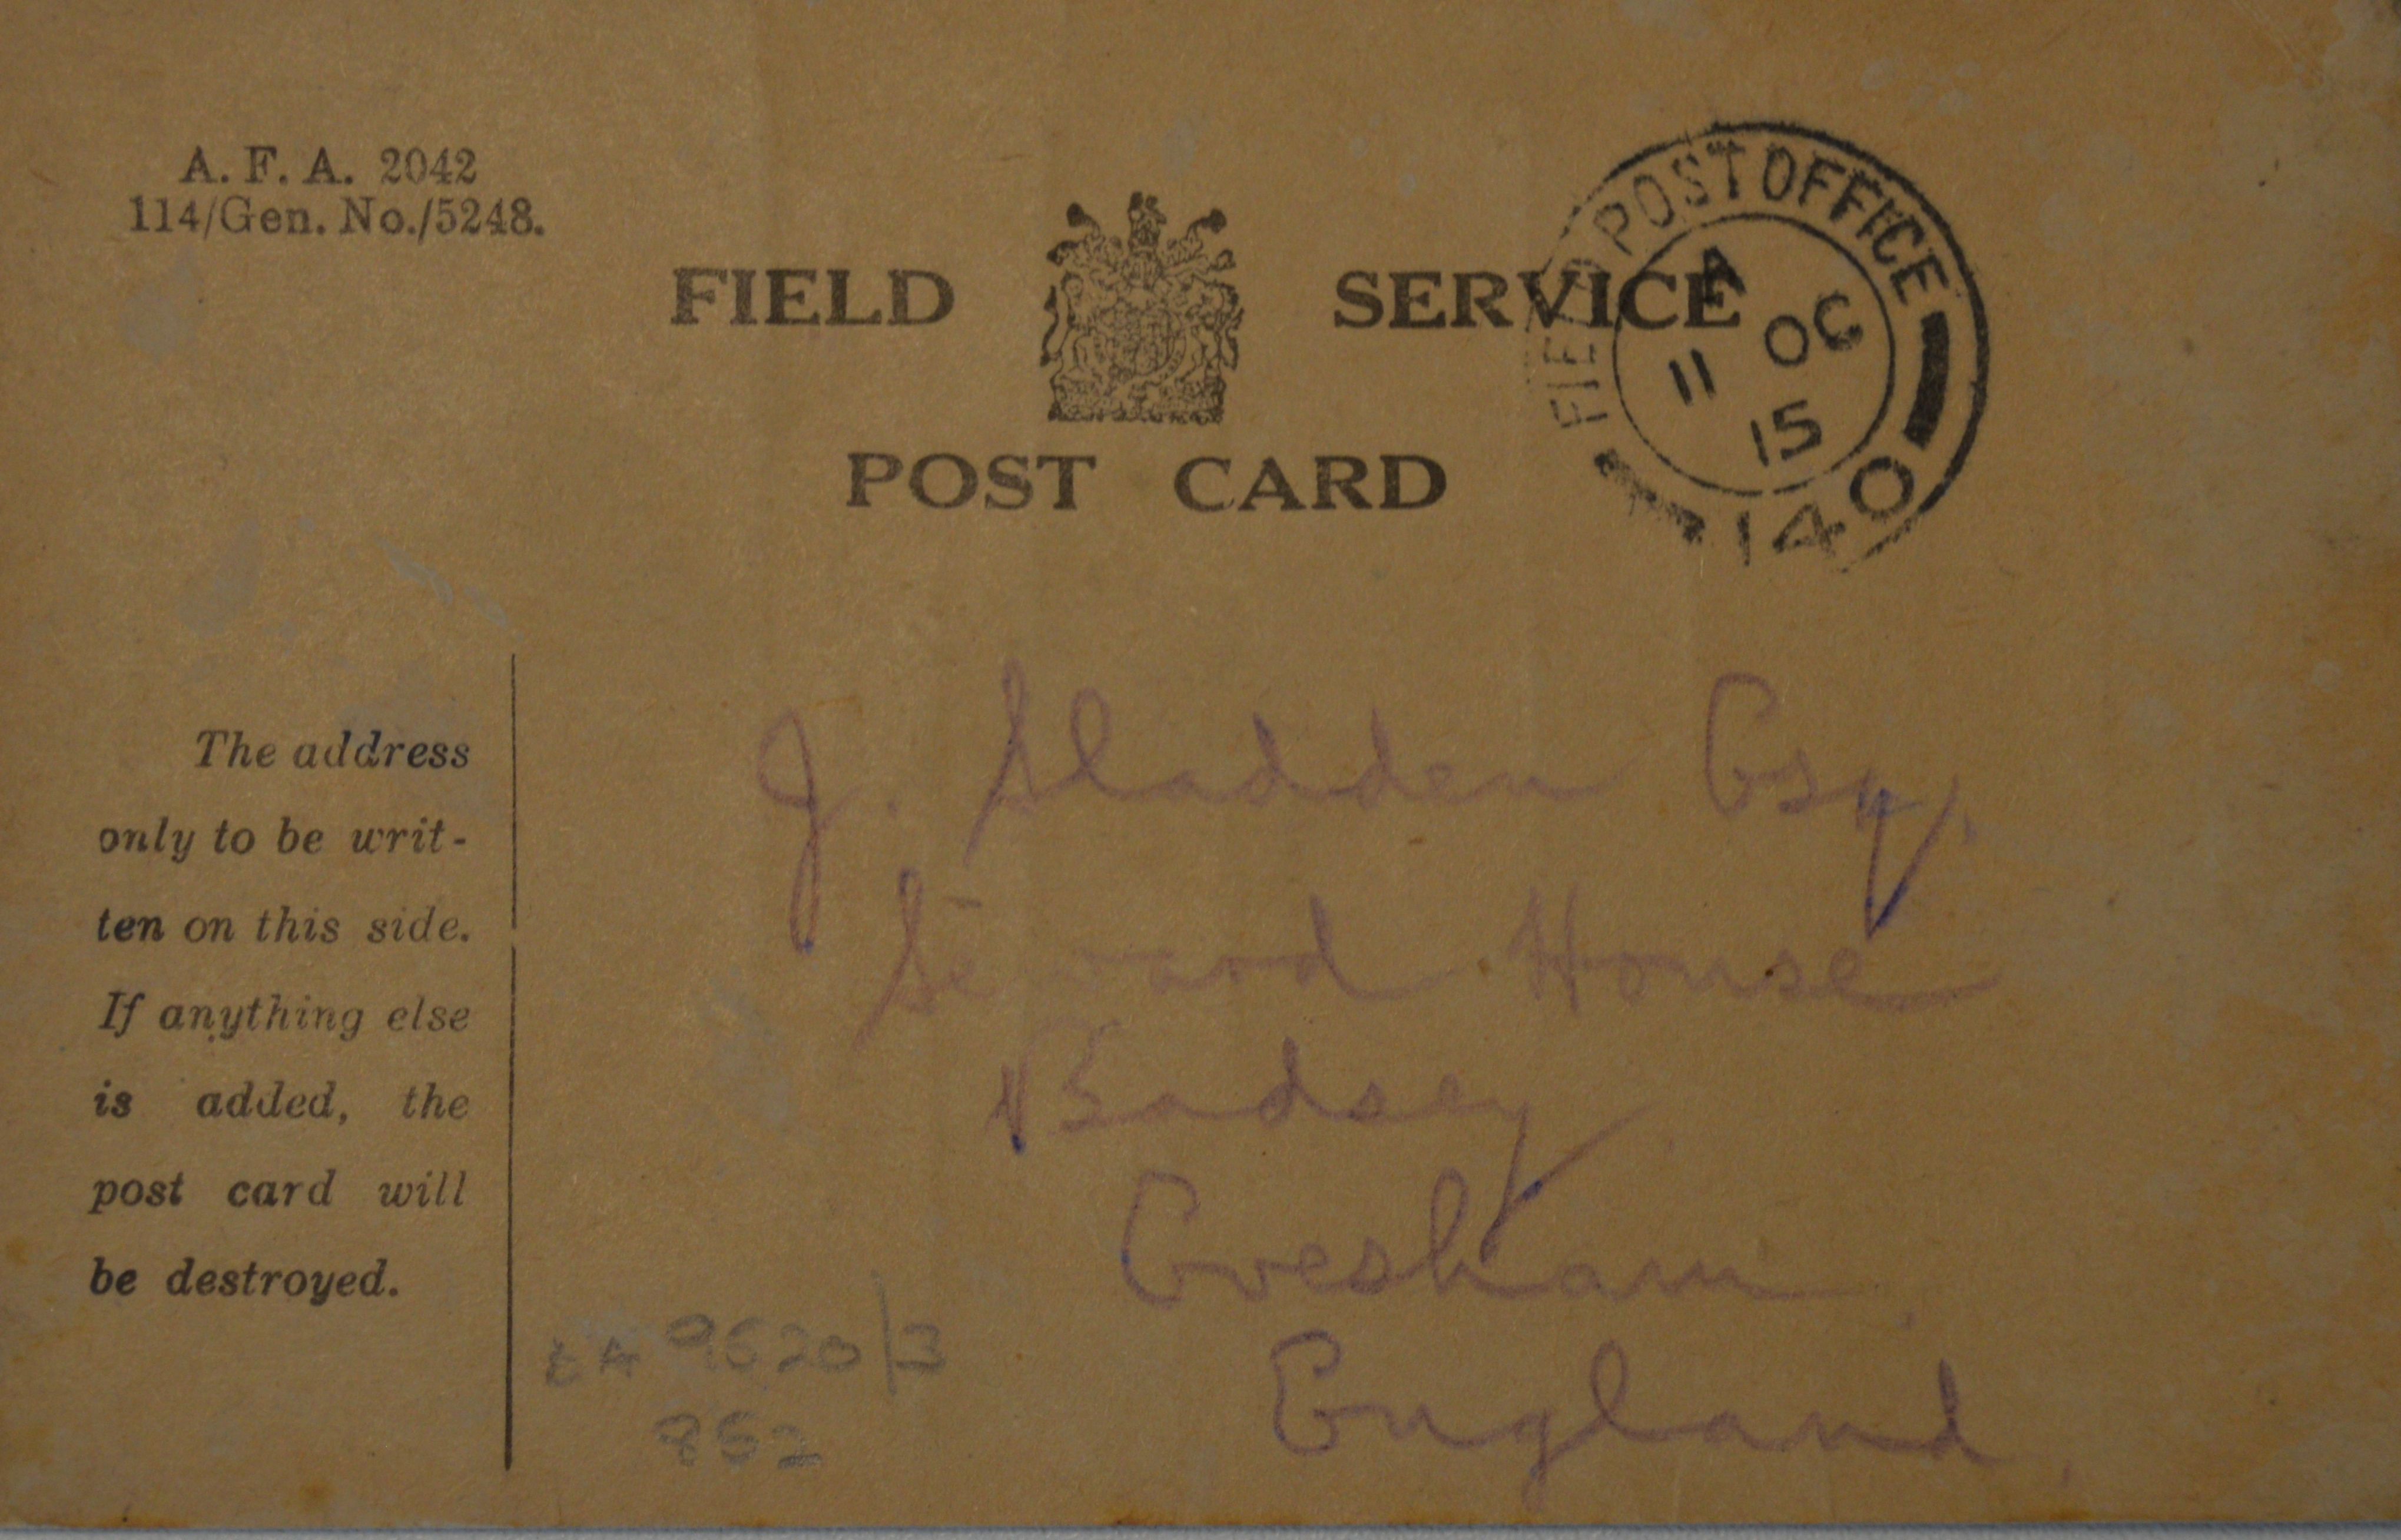 A. F. A. 2042
114/Gen. No./5248.
FIELD SERVICE
POST CARD
FIELD POST OFFICE
A
11 OC
15
140
The address
only to be writ-
ten on this side.
If anything else
is added, the
post card will
be destroyed.
J. Sladden Esq.
Seward House
Badsey
Evesham.
England.
9620/3
852